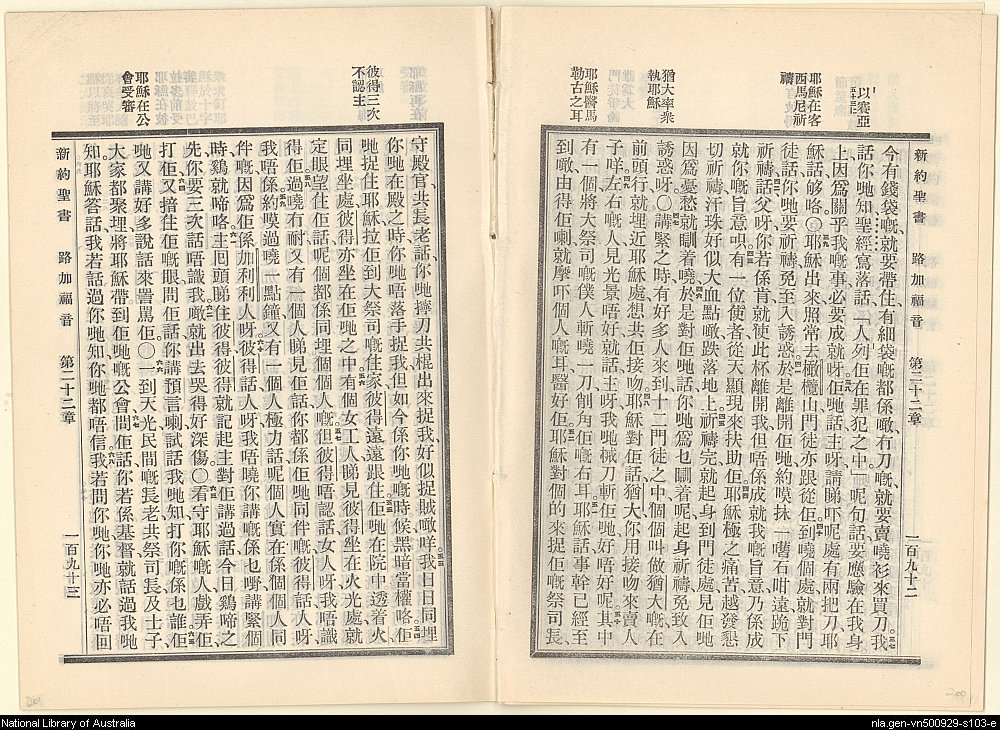 以賽亞
五十三 十二
耶穌在客西馬尼祈禱
猶大率衆執耶穌
耶穌醫馬勒古之耳
新約聖書 路加福音 第二十二章 一百九十二
今有錢袋嘅就要帶住有細袋嘅都係噉有刀嘅就要賣嘵衫來買刀我
話你哋知聖經寫落話人列佢在罪犯之中呢句話要應驗在我身
上因爲關乎我嘅事必要成就呀佢哋話主呀請睇吓呢處有兩把刀耶
穌話够咯〇耶穌出來照常去橄欖山門徒亦跟從佢到嘵個處就對門
徒話你哋要祈禱免至入誘惑於是離開佢哋約嘆抹一嚿石咁遠跪下
祈禱話父呀你若係肯就使此杯離開我但唔係成就我嘅旨意乃係成
就你嘅旨意呮有一位使者從天顯現來扶助佢耶穌極之痛苦越發懇
切祈禱汗珠好似大血點噉跌落地上祈禱完就起身到門徒處見佢哋
因爲憂愁就瞓着嘵於是對佢哋話你哋爲乜瞓着呢起身祈禱免致入
誘惑呀〇講緊之時有好多人來到十二門徒之中個個叫做猶大嘅在
前頭行就埋近耶穌處想共佢接吻耶穌對佢話猶大你用接吻來賣人
子咩左右嘅人見光景唔好就話主呀我哋械刀斬佢哋好唔好呢其中
有一個將大祭司嘅僕人斬嘵一刀削角佢嘅右耳耶穌話事幹已經至
到噉由得佢喇就摩吓個人嘅耳醫好佢耶穌對個的來捉佢嘅祭司長
彼得三次不認主
耶穌在公會受審
守殿官共長老話你哋擰刀共棍出來捉我好似捉賊噉咩我日日同埋
你哋在殿之時你哋唔落手捉我但如今係你哋嘅時候黑暗當權咯佢
哋捉住耶穌拉佢到大祭司嘅住家彼得遠遠跟住佢哋在院中透着火
同埋坐處彼得亦坐在佢哋之中有個女工人睇見彼得坐在火光處就
定眼望住佢話呢個都係同埋個個人嘅但彼得唔認話女人呀我唔識
得佢過嘵有耐又有一個人睇見佢話你都係佢哋同伴嘅彼得話人呀
我唔係約嘆過嘵一點鐘又有一個人極力話呢個人實在係個個人同
伴嘅因爲佢係加利利人呀彼得話人呀我唔曉你講嘅係乜嘢講緊個
時鷄就啼咯主囘頭睇住彼得彼得就記起主對佢講過話今日鷄啼之
先你要三次話唔識我噉就出去哭得好深傷〇看守耶穌嘅人戲弄佢
打佢又揞住佢嘅眼問佢話你講預言喇試話我哋知打你嘅係乜誰佢
哋又講好多說話來詈罵佢〇一到天光民間嘅長老共祭司長及士子
大家都聚埋將耶穌帶到佢哋嘅公會間佢話你若係基督就話過我哋
知耶穌答話我若話過你哋知你哋都唔信我若問你哋你哋亦必唔回
新約聖書 路加福音 第二十二章 一百九十三
National Library of Australia
nla.gen-vn500929-s103-e